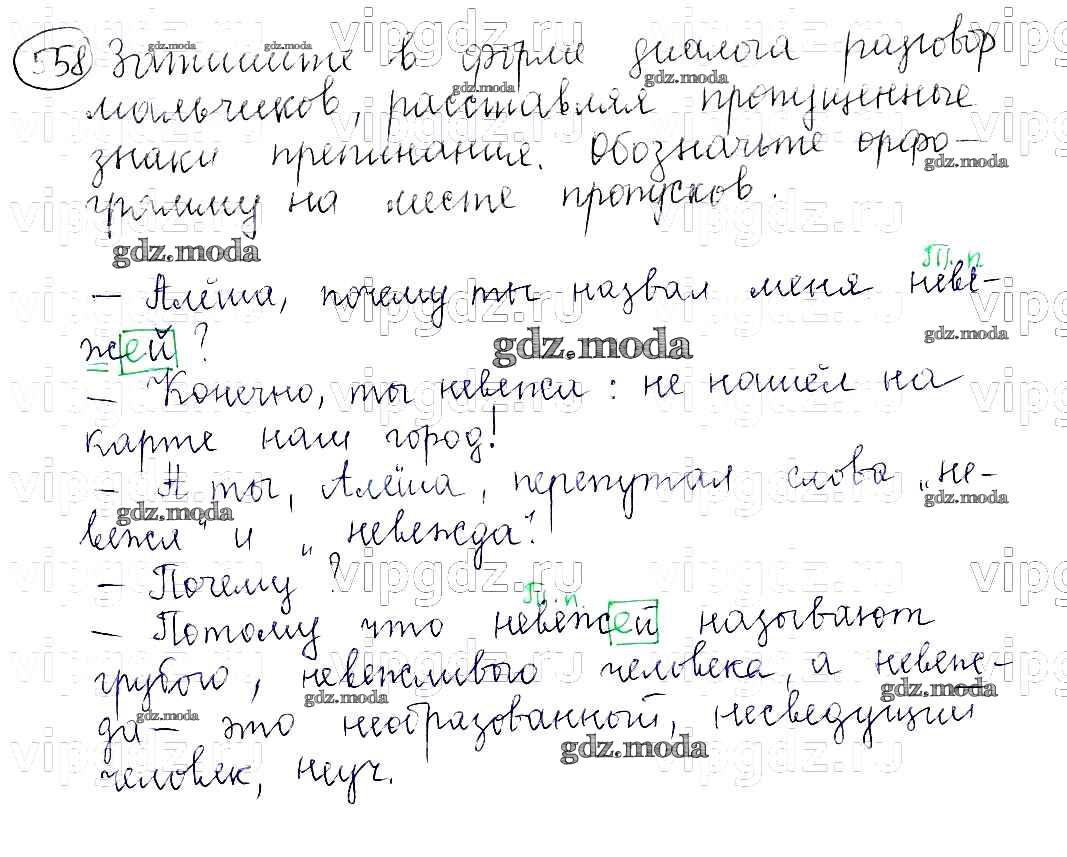 558 Запишите в форме диалога разговор
мальчиков, расставляя пропущенные
знаки препинания. Обозначьте орфо-
грамму на месте пропусков.
Т. п.
— Алёша, почему ты назвал меня неве-
жей?
— Конечно, ты невежа: не нашёл на
карте наш город!
— А ты, Алёша, перепутал слова „не-
вежа“ и „невежда“.
— Почему?
Т. п.
— Потому что невежей называют
грубого, невежливого человека, а невеж-
да — это необразованный, несведущий
человек, неуч.